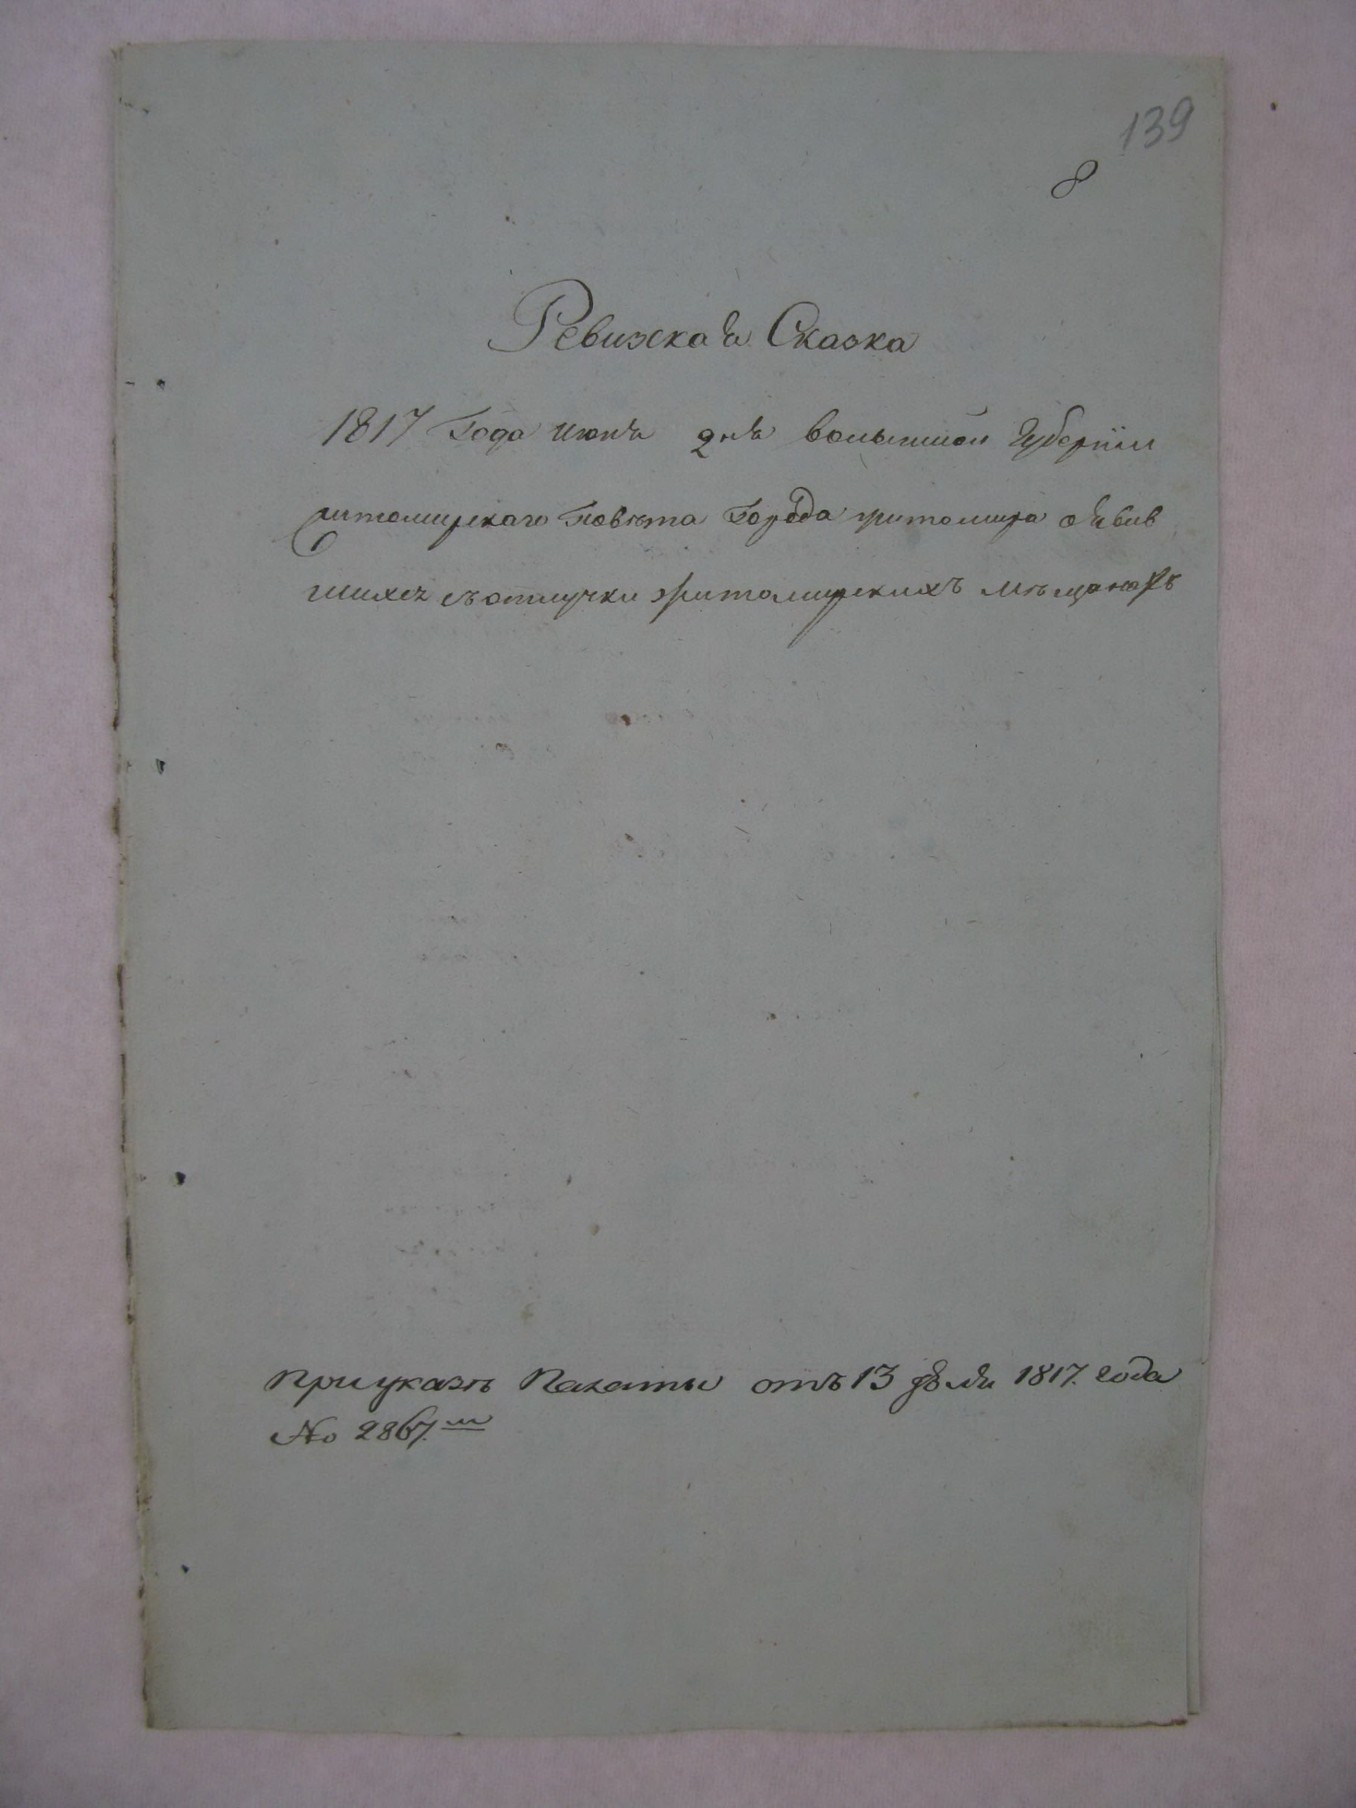 139
8
Ревизская Сказка
1817 Года июня дня волынской Губернiи
житомирского Повѣта Города житомира объявив
шихся съ отлучки житомирскихъ мѣщанахъ
при указѣ Палаты отъ 13 1817. года
No 2867.м